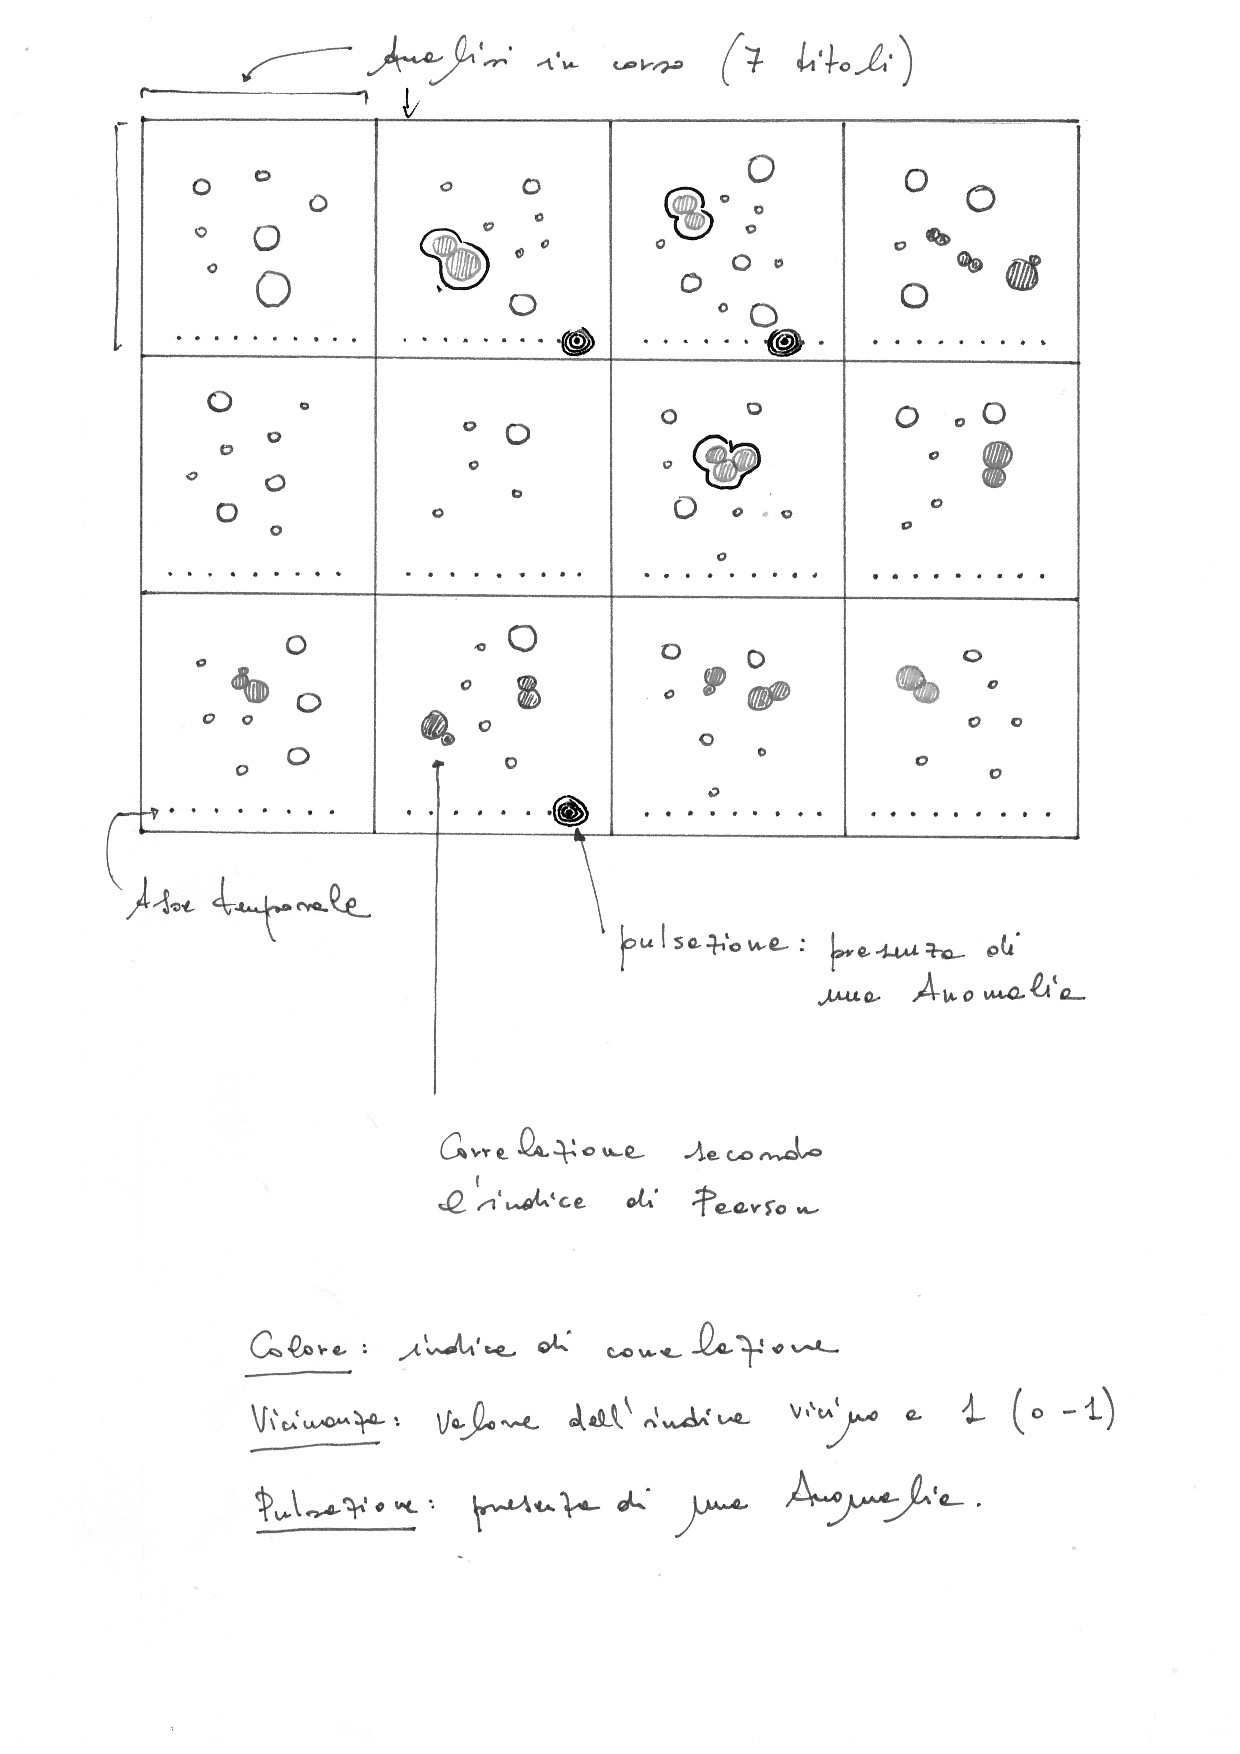 Analisi in corso (7 titoli)
Asse temporale
pulsazione: presenza di
una Anomalia
Correlazione secondo
l'indice di Pearson
Colore: indice di correlazione
Vicinanza: Valore dell'indice vicino a 1 (0-1)
Pulsazione: presenza di una Anomalia.